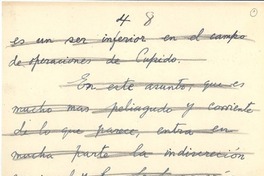 4 8
es un ser inferior en el campo
de operaciones de Cupido.
En este asunto, que es
mucho mas peliagudo y corriente
de lo que parece, entra en
mucha parte la indiscreción